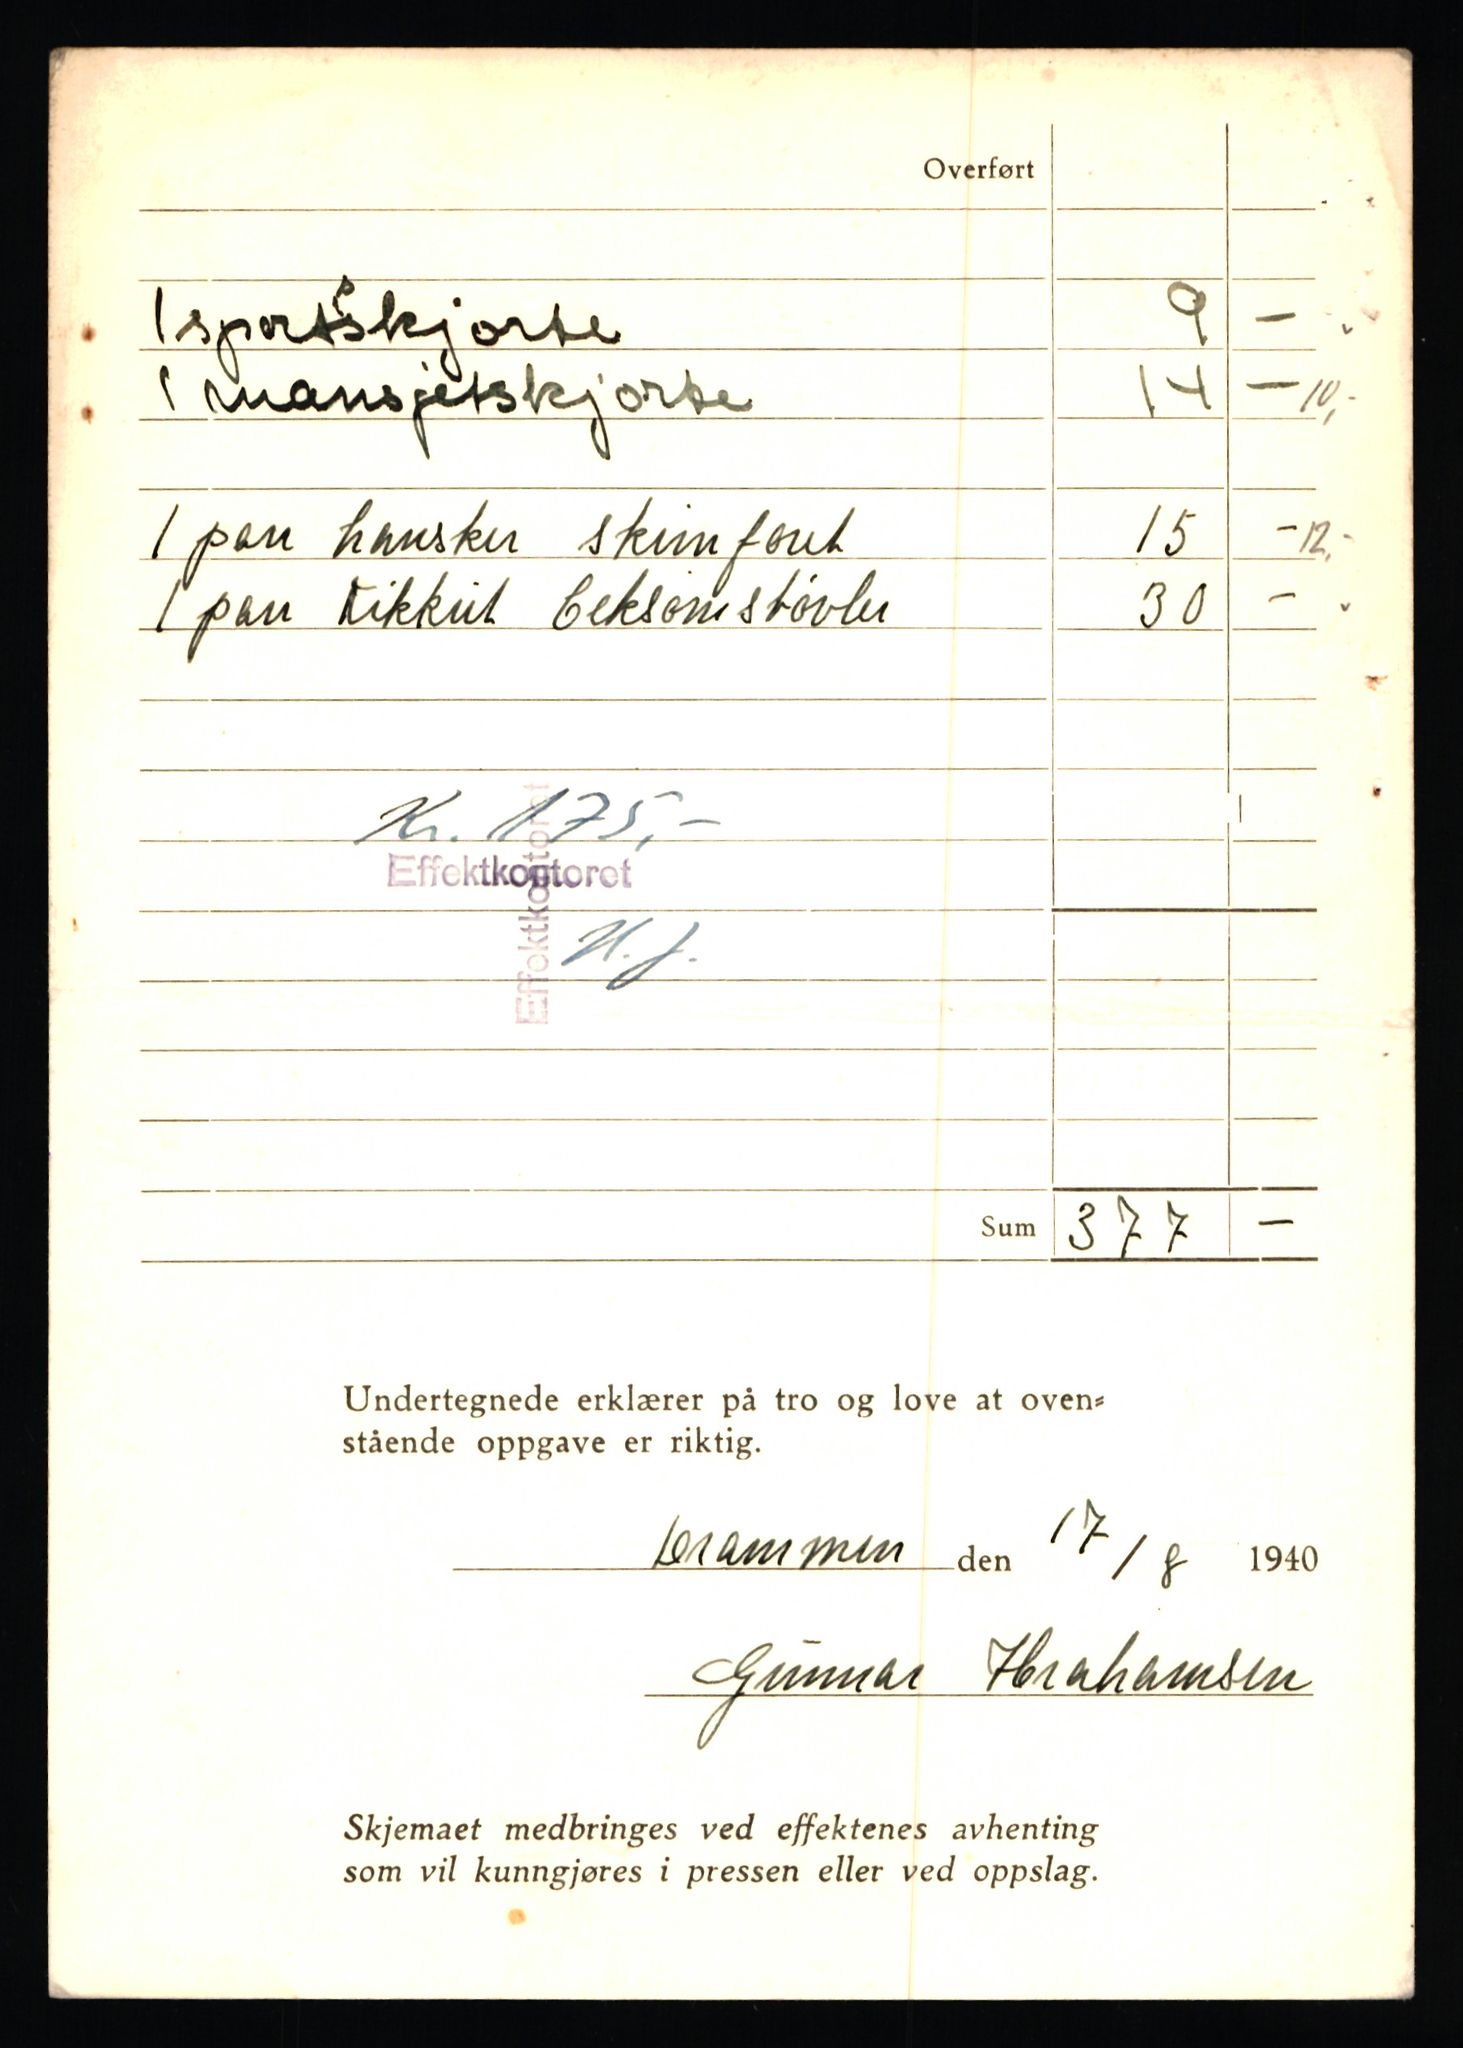 Overført
1 sportsskjorte 9 -
1 mansjetskjorte 14 - 10,-
1 par hansker skinnforet 15 - 12,-
1 par tikkut beksømstøvler 30 -
Kr. 175,-
Effektkontoret
Effektkontoret
H. J.
Sum 377 -
Undertegnede erklærer på tro og love at oven-
stående oppgave er riktig.
Drammen den 17/8 1940
Gunnar Abrahamsen
Skjemaet medbringes ved effektenes avhenting
som vil kunngjøres i pressen eller ved oppslag.